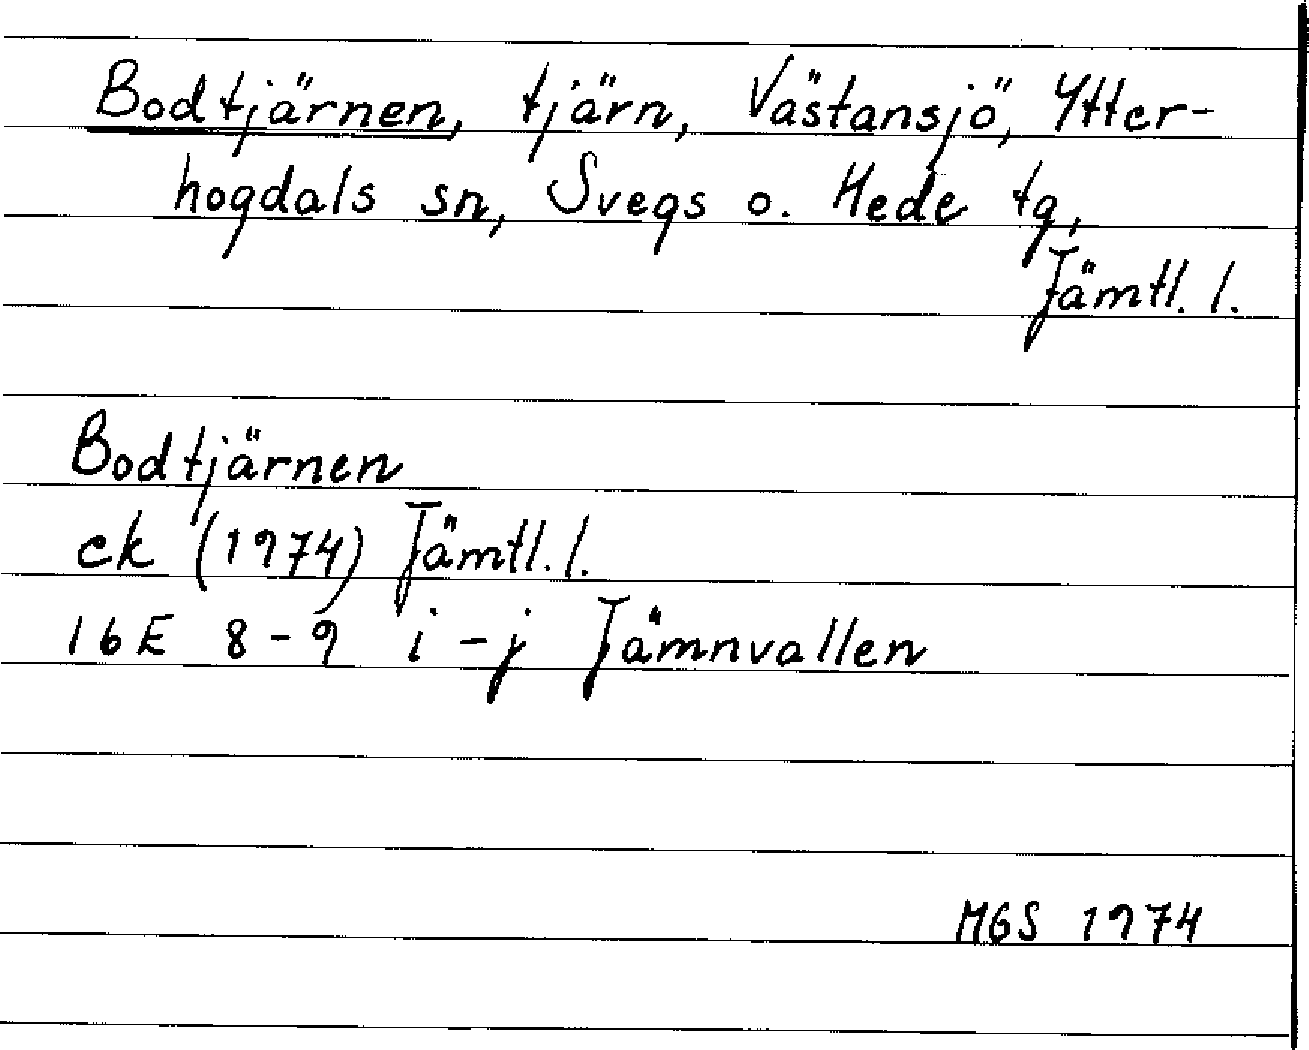 Bodtjärnen, tjärn, Västansjö, Ytter-
hogdals sn, Svegs o. Hede tg,
Jämtl. l.
Bodtjärnen
ek (1974) Jämtl. l.
16E 8-9 i-j Jämnvallen
MGS 1974